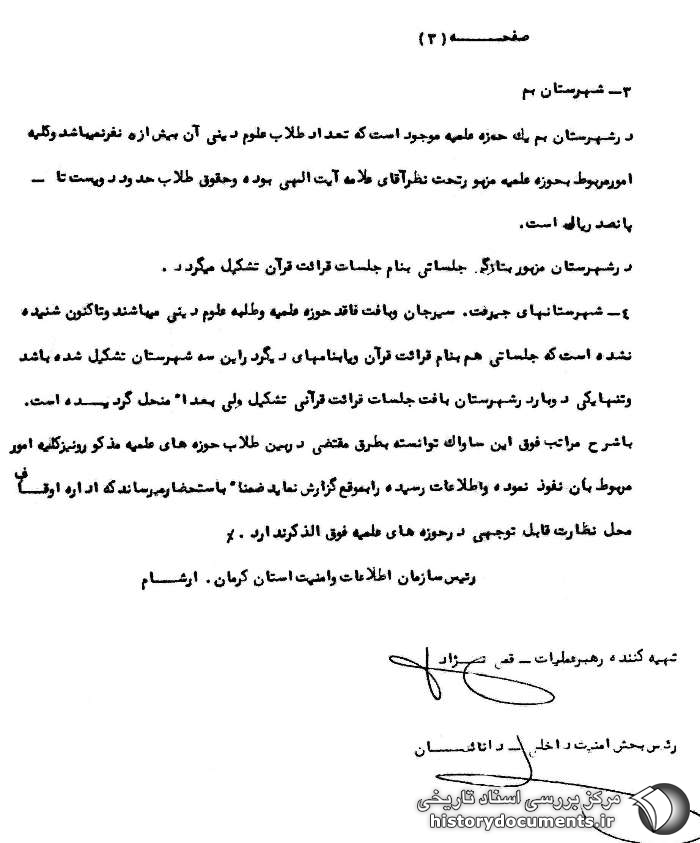 صفحـــــه (۳)
۳ــ شهرستان بم
در شهرستان بم یك حوزه علمیه موجود است که تعداد طلاب علوم دینی آن بیش از ه نفر نمیباشد وکلیه
امور مربوط بحوزه علمیه مزبور تحت نظر آقای علامه آیت الهی بوده وحقوق طلاب حدود دویست تا ــ
پانصد ریال است.
در شهرستان مزبور بتازگی جلساتی بنام جلسات قرائت قرآن تشکیل میگردد .
٤ــ شهرستانهای جیرفت. سیرجان وبافت فاقد حوزه علمیه وطلبه علوم دینی میباشند وتاکنون شنیده
نشده است که جلساتی هم بنام قرائت قرآن ویابنامهای دیگر در این سه شهرستان تشکیل شده باشد
وتنها یکی دوبار در شهرستان بافت جلسات قرائت قرآنی تشکیل ولی بعداً منحل گردیـــده است.
باشرح مراتب فوق این ساواك توانسته بطرق مقتضی در بین طلاب حوزه های علمیه مذکور ونیز کلیه امور
مربوط بآن نفوذ نموده واطلاعات رسیده را بموقع گزارش نماید ضمناً باستحضار میرساند که اداره اوقـــاف
محل نظارت قابل توجهی در حوزه های علمیه فوق الذکر ندارد . ٪
رئیس سازمان اطلاعات وامنیت استان کرمان . آرشـــام
تهیه کننده رهبر عملیات ــ
رئیس بخش امنیت داخلی ــ دانائـــــان
مرکز بررسی اسناد تاریخی
historydocuments.ir